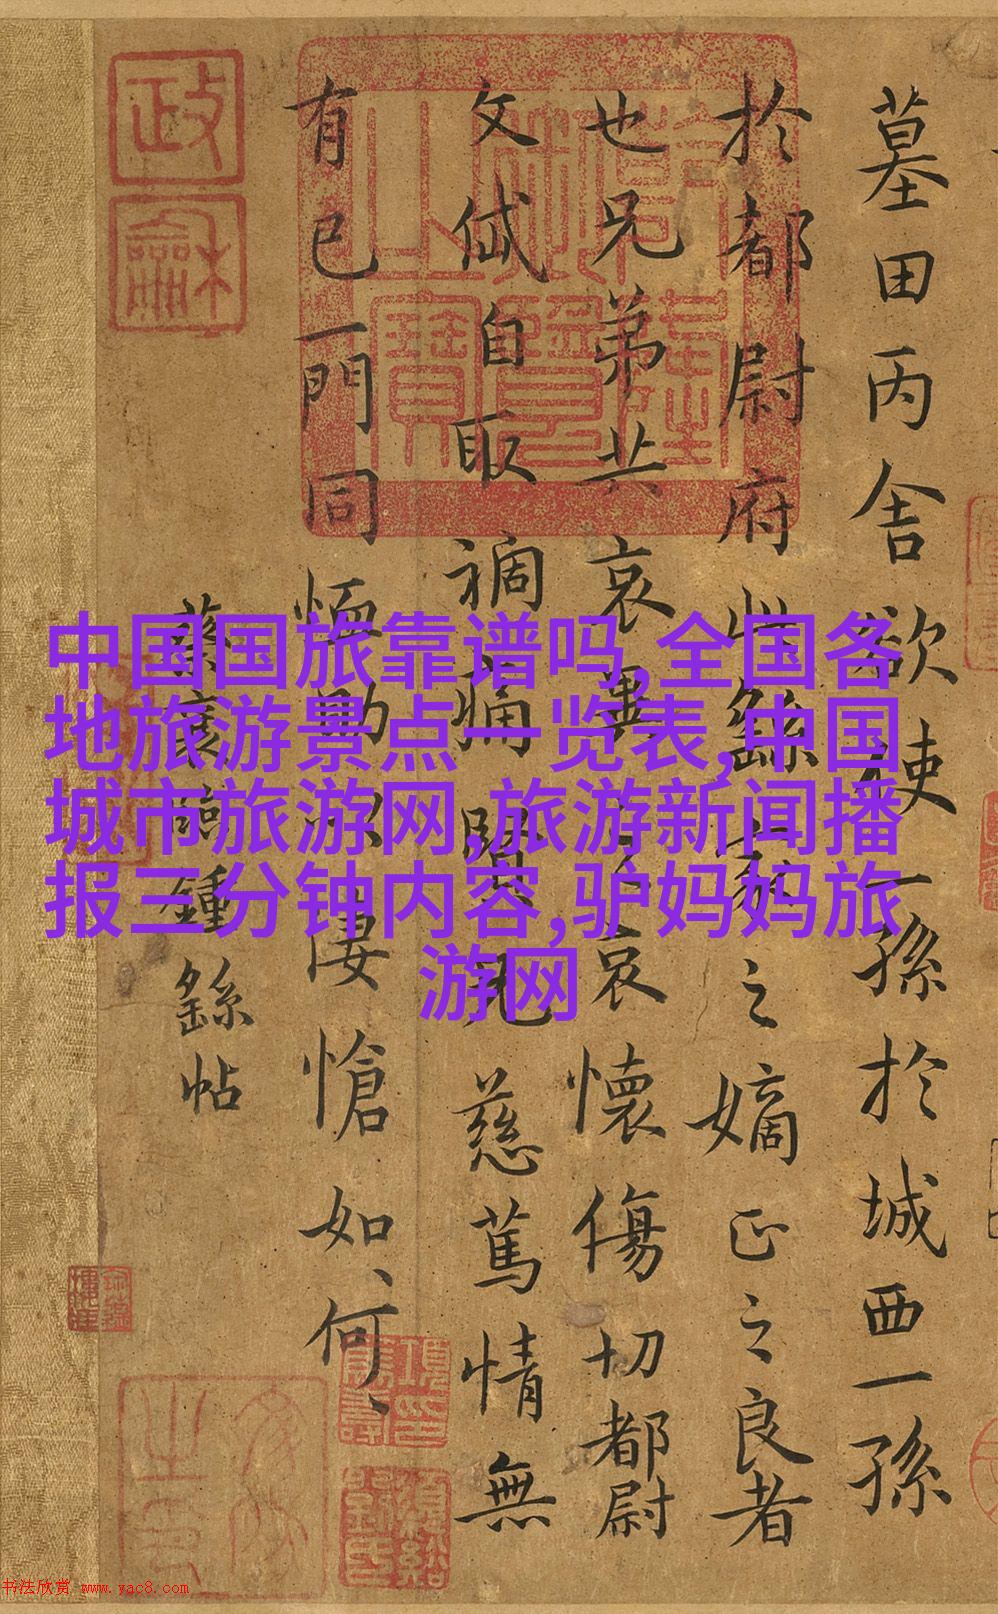 墓田丙舍欲使一孫於城西一孫
於都尉府此繇家之嫡正之良者
也兄弟共哀異之哀懷傷切都尉
文岱自取禍痛賢兄慈篤情無
有已一門同恤助以悽愴如、何、
蔡襄臨鍾繇帖
政
龢
中国国旅靠谱吗,全国各
地旅游景点一览表,中国
城市旅游网,旅游新闻播
报三分钟内容,驴妈妈旅
游网
书法欣赏 www.yac8.com